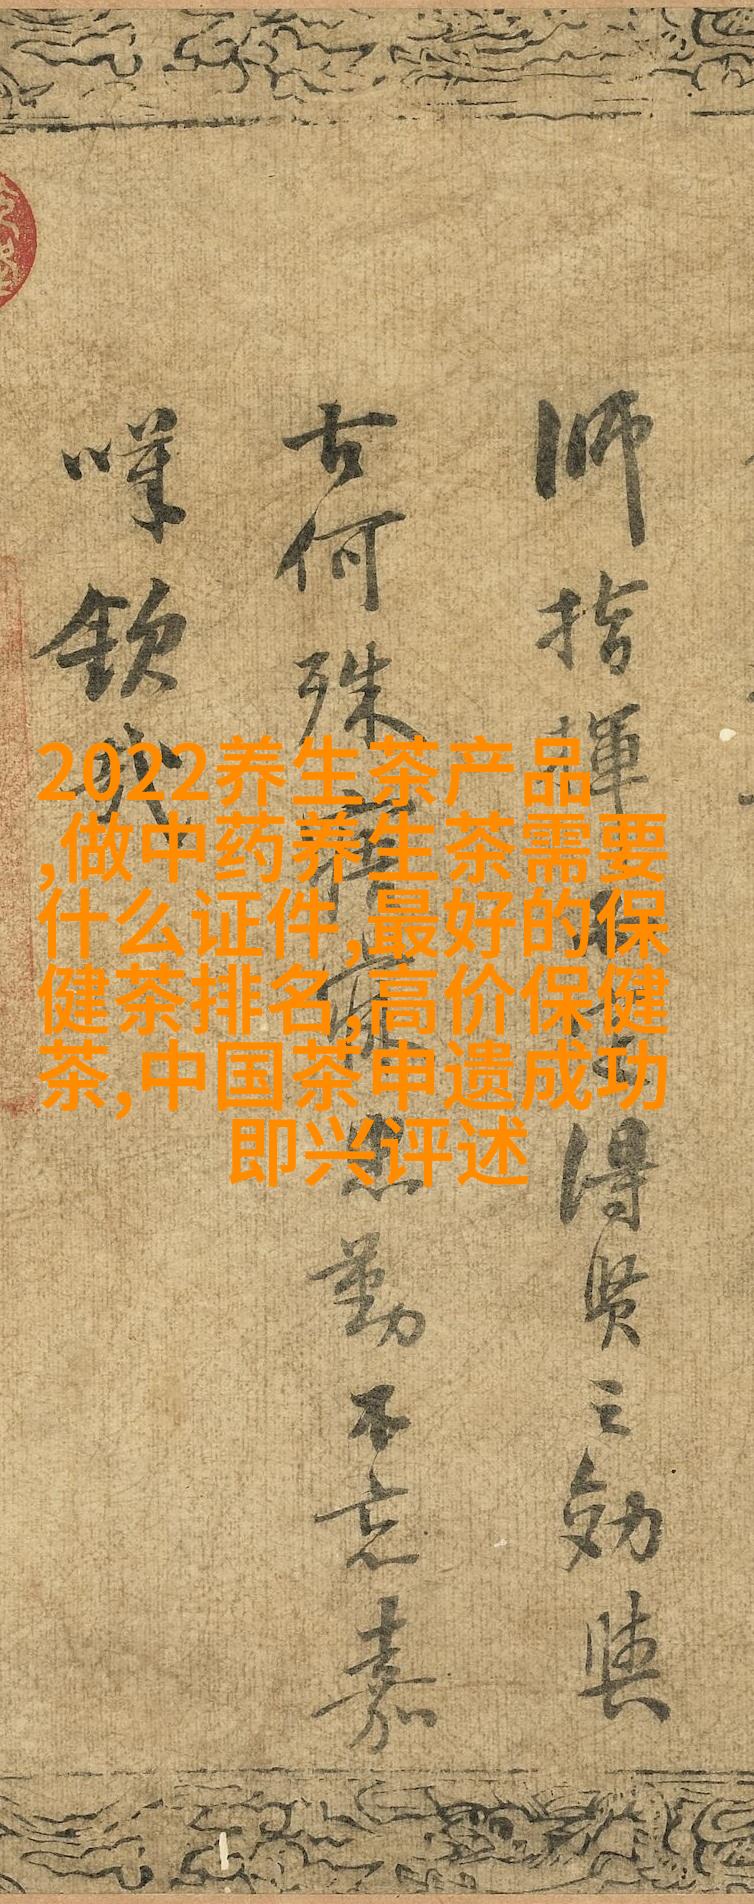 2022养生茶产品
,做中药养生茶需要
什么证件,最好的保
健茶排名,高价保健
茶,中国茶申遗成功
即兴评述
師指揮得賢之効與
古何殊忠勤不忘嘉
嘆欽哉